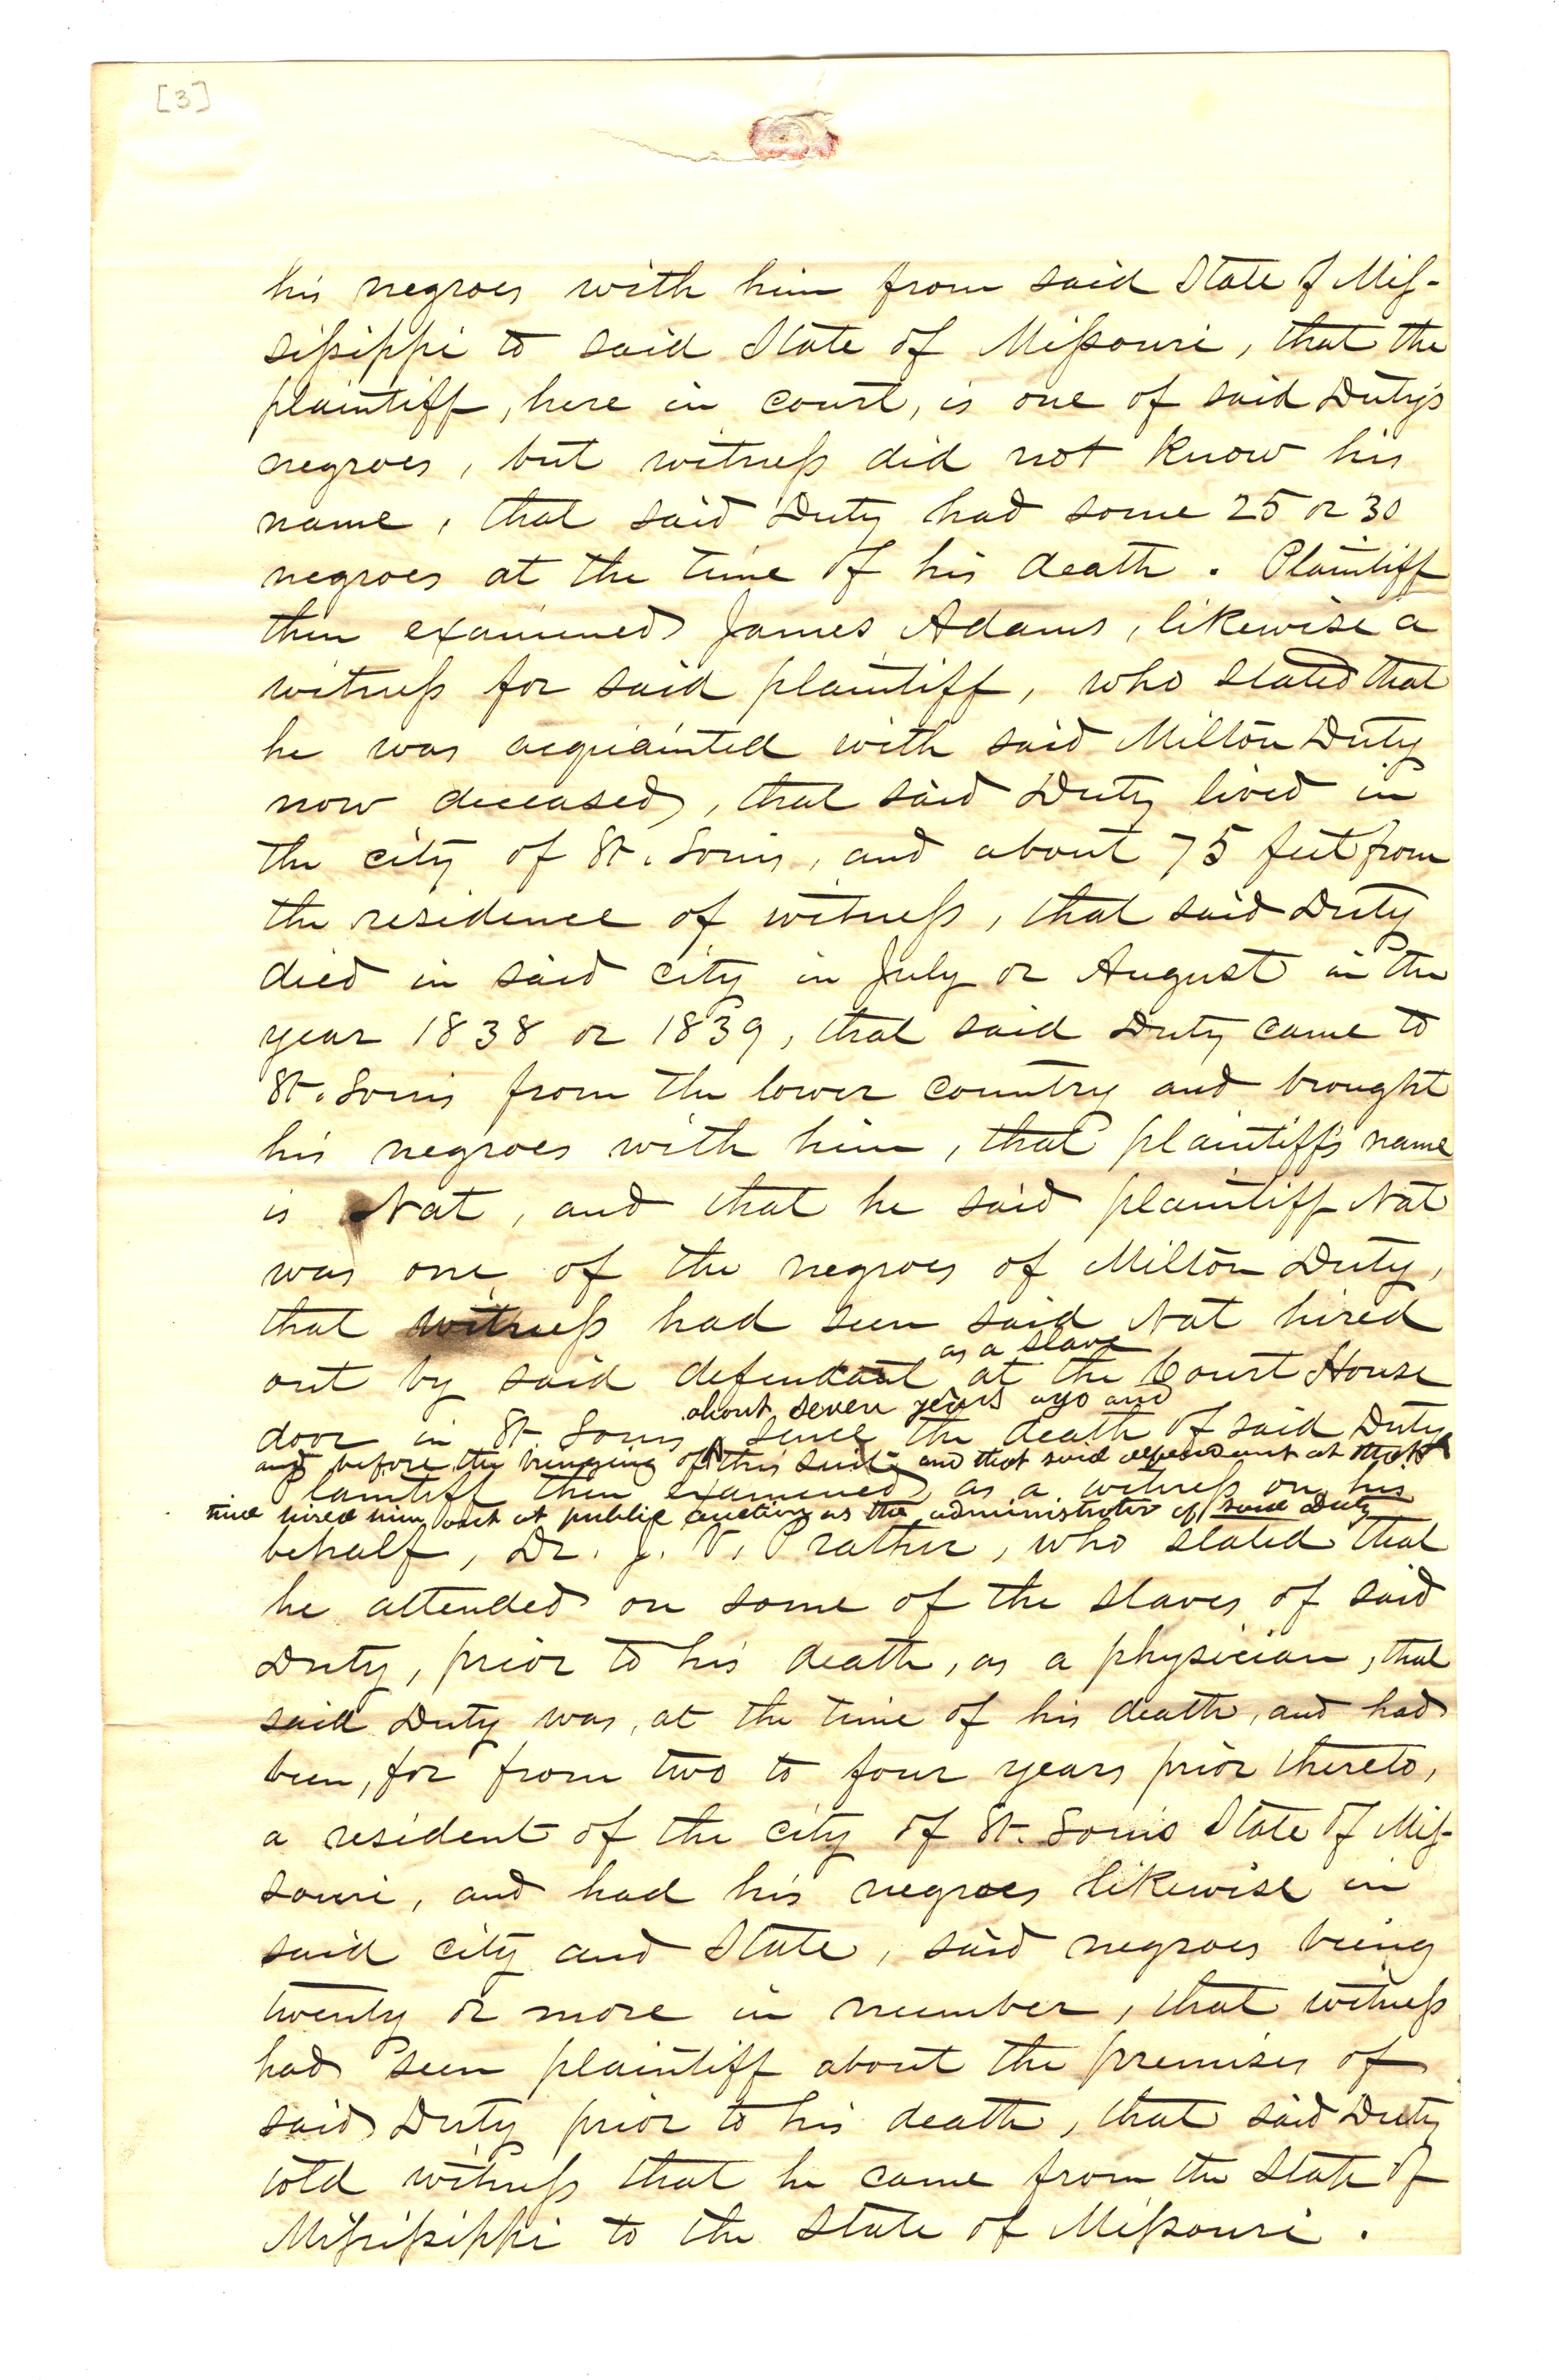 [3]
his negroes with him from said State of Mis-
sissippi to said State of Missouri, that the
plaintiff, here in court, is one of said Duty's
negroes, but witness did not know his
name, that said Duty had some 25 or 30
negroes at the time of his death. Plaintiff
then examined James Adams, likewise a
witness for said plaintiff, who stated that
he was acquainted with said Milton Duty
now deceased, that said Duty lived in
the city of St. Louis, and about 75 feet from
the residence of witness, that said Duty
died in said city in July or August in the
year 1838 or 1839, that said Duty came to
St. Louis from the lower country and brought
his negroes with him, that plaintiff's name
is Nat, and that he said plaintiff Nat
was one of the negroes of Milton Duty,
that witness had seen said Nat hired
as a slave
out by said defendant at the Court House
about seven years ago and
door in St. Louis, since the death of said Duty
and before the bringing of this suit and that said defendant at that
Plaintiff then examined as a witness on his
time hired him out at public auction as the administrator of said Duty
behalf, Dr. J. V. Prather, who stated that
he attended on some of the slaves of said
Duty, prior to his death, as a physician, that
said Duty was, at the time of his death, and had
been, for from two to four years prior thereto,
a resident of the city of St. Louis State of Mis-
souri, and had his negroes likewise in
said city and State, said negroes being
twenty or more in number, that witness
had seen plaintiff about the premises of
said Duty prior to his death, that said Duty
told witness that he came from the State of
Mississippi to the State of Missouri.